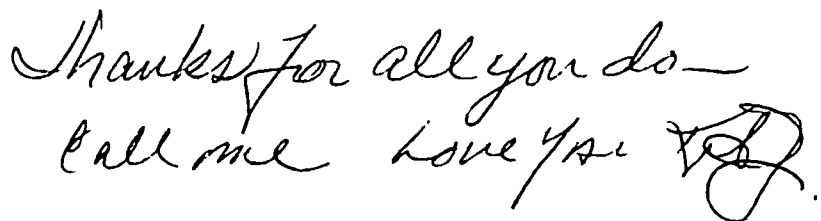 Thanks for all you do—
Call me Love you